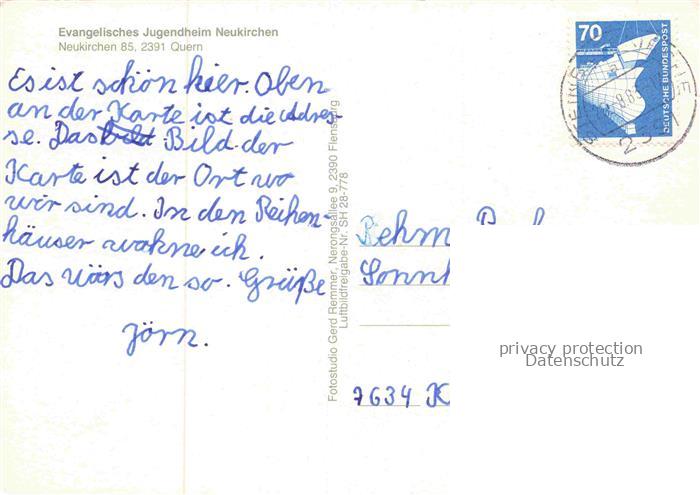 Evangelisches Jugendheim Neukirchen
Neukirchen 85, 2391 Quern
Es ist schön hier. Oben
an der Karte ist die Adres-
se. Das Bild der
Karte ist der Ort wo
wir sind. In den Reihen-
häuser wohne ich.
Das wärs den so. Grüße
Jörn.
Fotostudio Gerd Remmer, Nerongsallee 9, 2390 Flensburg
Luftbildfreigabe-Nr. SH 28-778
70
DEUTSCHE BUNDESPOST
Rehm
Sonn
7634 K
privacy protection
Datenschutz